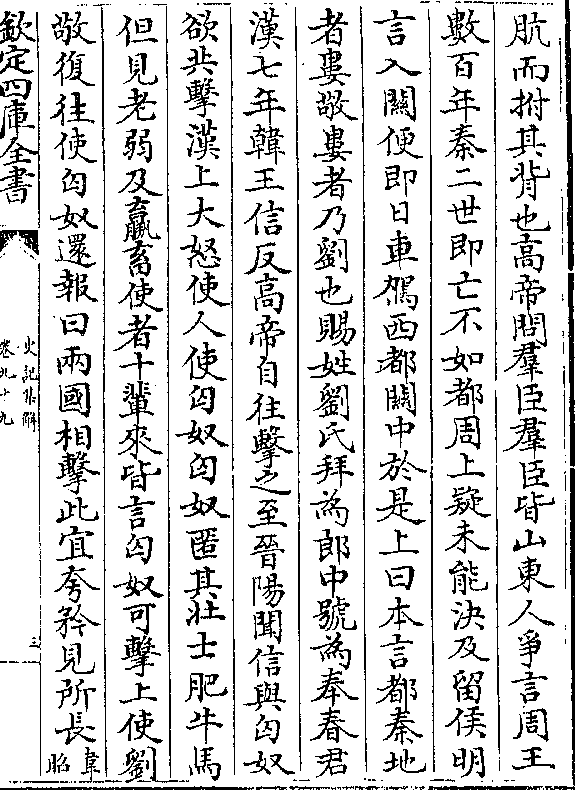 肮而拊其背也高帝問羣臣羣臣皆山東人爭言周王
數百年秦二世即亡不如都周上疑未能決及留侯明
言入關便即日車駕西都關中於是上曰本言都秦地
者婁敬婁者乃劉也賜姓劉氏拜為郎中號為奉春君
漢七年韓王信反高帝自往擊之至晉陽聞信與匈奴
欲共擊漢上大怒使人使匈奴匈奴匿其壯士肥牛馬
但見老弱及羸畜使者十輩來皆言匈奴可擊上使劉
敬復往使匈奴還報曰兩國相擊此宜夸矜見所長韋昭
欽定四庫全書
史記集解
卷九十九
三